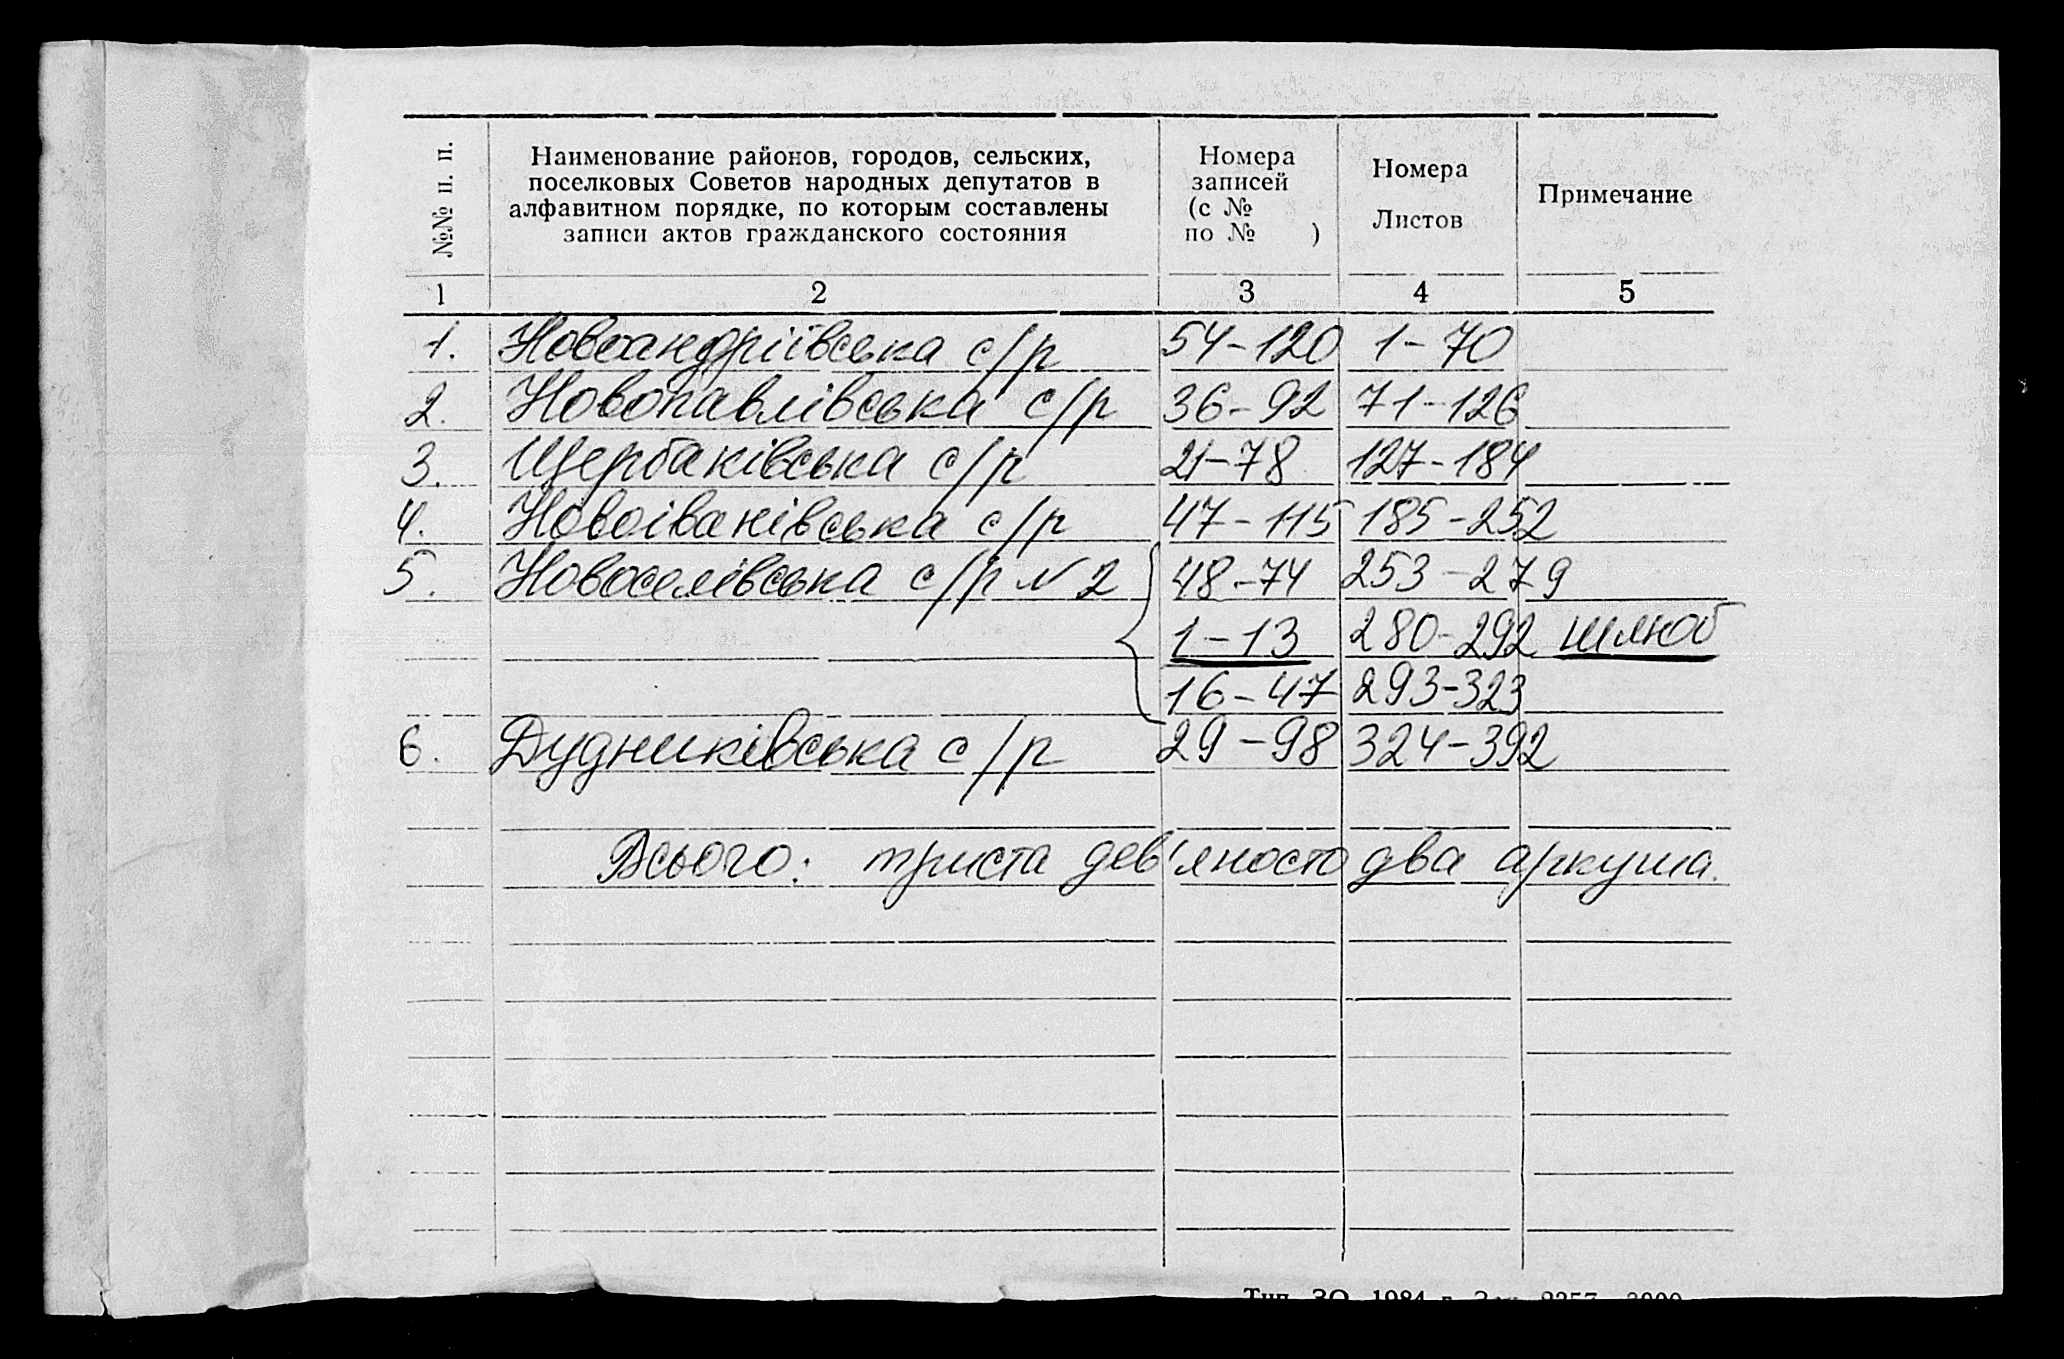 №№ п. п.
Наименование районов, городов, сельских,
поселковых Советов народных депутатов в
алфавитном порядке, по которым составлены
записи актов гражданского состояния
Номера
записей
(с №
по № )
Номера
Листов
Примечание
1 2 3 4 5
1. Новоандріївська с/р 54-120 1-70
2. Новопавлівська с/р 36-92 71-126
3. Щербаківська с/р 21-78 127-184
4. Новоіванівська с/р 47-115 185-252
5. Новоселівська с/р N 2 48-74 253-279
1-13 280-292 шлюб
16-47 293-323
6. Дудниківська с/р 29-98 324-392
Всього: триста дев'яносто два аркуша.
Тип. ЗО 1984 г. Зак. 2257